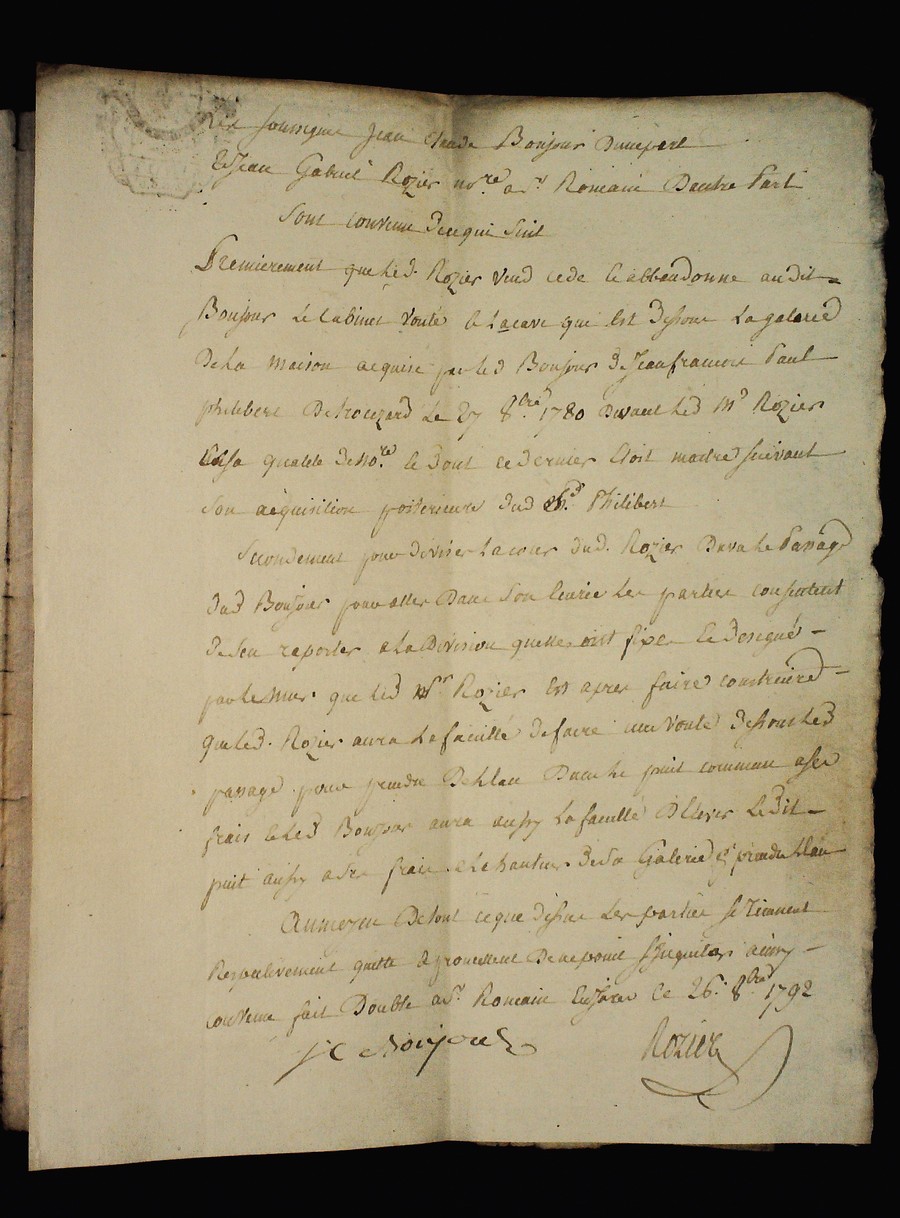 les soussignés Jean Claude Bonjour D'une part
Et Jean Gabriel Rozier no.re a St Romain D'autre Part
Sont convenu De ce qui Suit
Premierement que led. Rozier vend cede & abbandonne audit
Bonjour Le Cabinet Vouté & La cave qui Est Dessous La galerie
De La Maison acquise par led Bonjour De Jean francois Paul
philibert De le 27 8.bre 1780 Devant led Mr Rozier
En Sa qualité De no.re & Dont ce dernier Etoit maitre Suivant
Son acquisition posterieure Dud Sr. Philibert
Secondement pour diviser La cour Dud. Rozier Davec Le Passage
Dud Bonjour pour aller Dans Son Ecurie Les parties consentent
De Sen raporter a La Division quelles ont fixée & Designé
par Le Mur que led Sr Rozier Est apres faire construire
que led. Rozier aura La faculté De faire une Voute Dessous led
passage pour prendre De Leau Dans Le puit commun a Ses
frais & led Bonjour aura aussy La faculté D'Elever Ledit
puit aussy a Ses frais a La hauteur De Sa Galerie & y prendre Leau
Au moyen De tout ce que Dessus Les parties Se Tiennent
Respectivement quitte & promettent De ne point Sinquieter ainsy
convenu fait Double a St. Romain En Jarez Le 26. 8.bre 1792
J C Bonjour Rozier